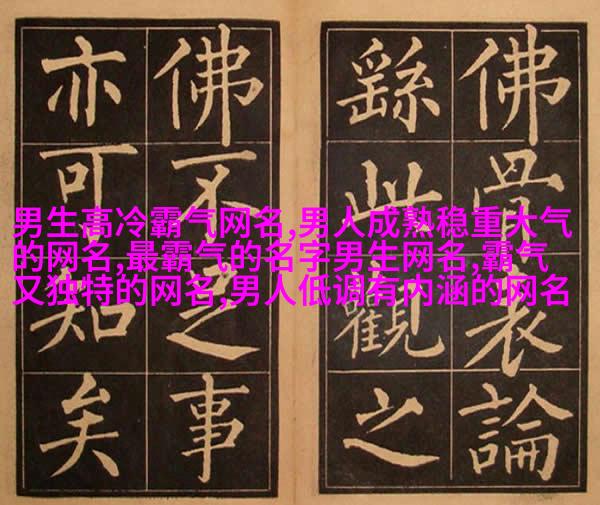 佛骨表論
繇此觀之
佛不足事
亦可知矣
男生高冷霸气网名,男人成熟稳重大气
的网名,最霸气的名字男生网名,霸气
又独特的网名,男人低调有内涵的网名